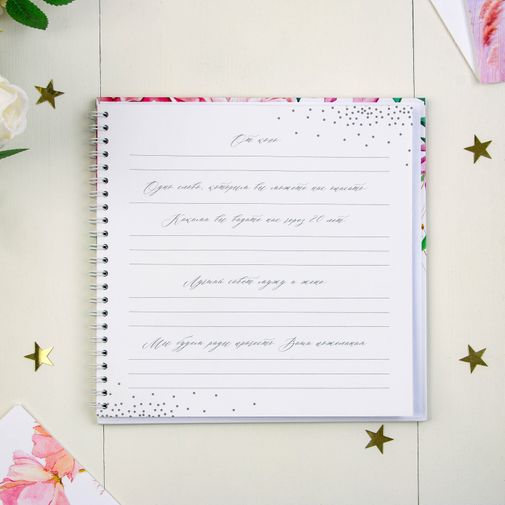 От кого:
Одно слово, которым вы можете нас описать
Какими вы видите нас через 20 лет
Лучший совет мужу и жене
Мы будем рады прочесть Ваши пожелания